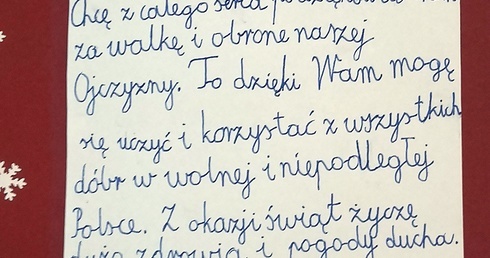 Chcę z całego serca podziękować
za walkę i obronę naszej
Ojczyzny. To dzięki Wam mogę
się uczyć i korzystać z wszystkich
dóbr w wolnej i niepodległej
Polsce. Z okazji świąt życzę
dużo zdrowia i pogody ducha.